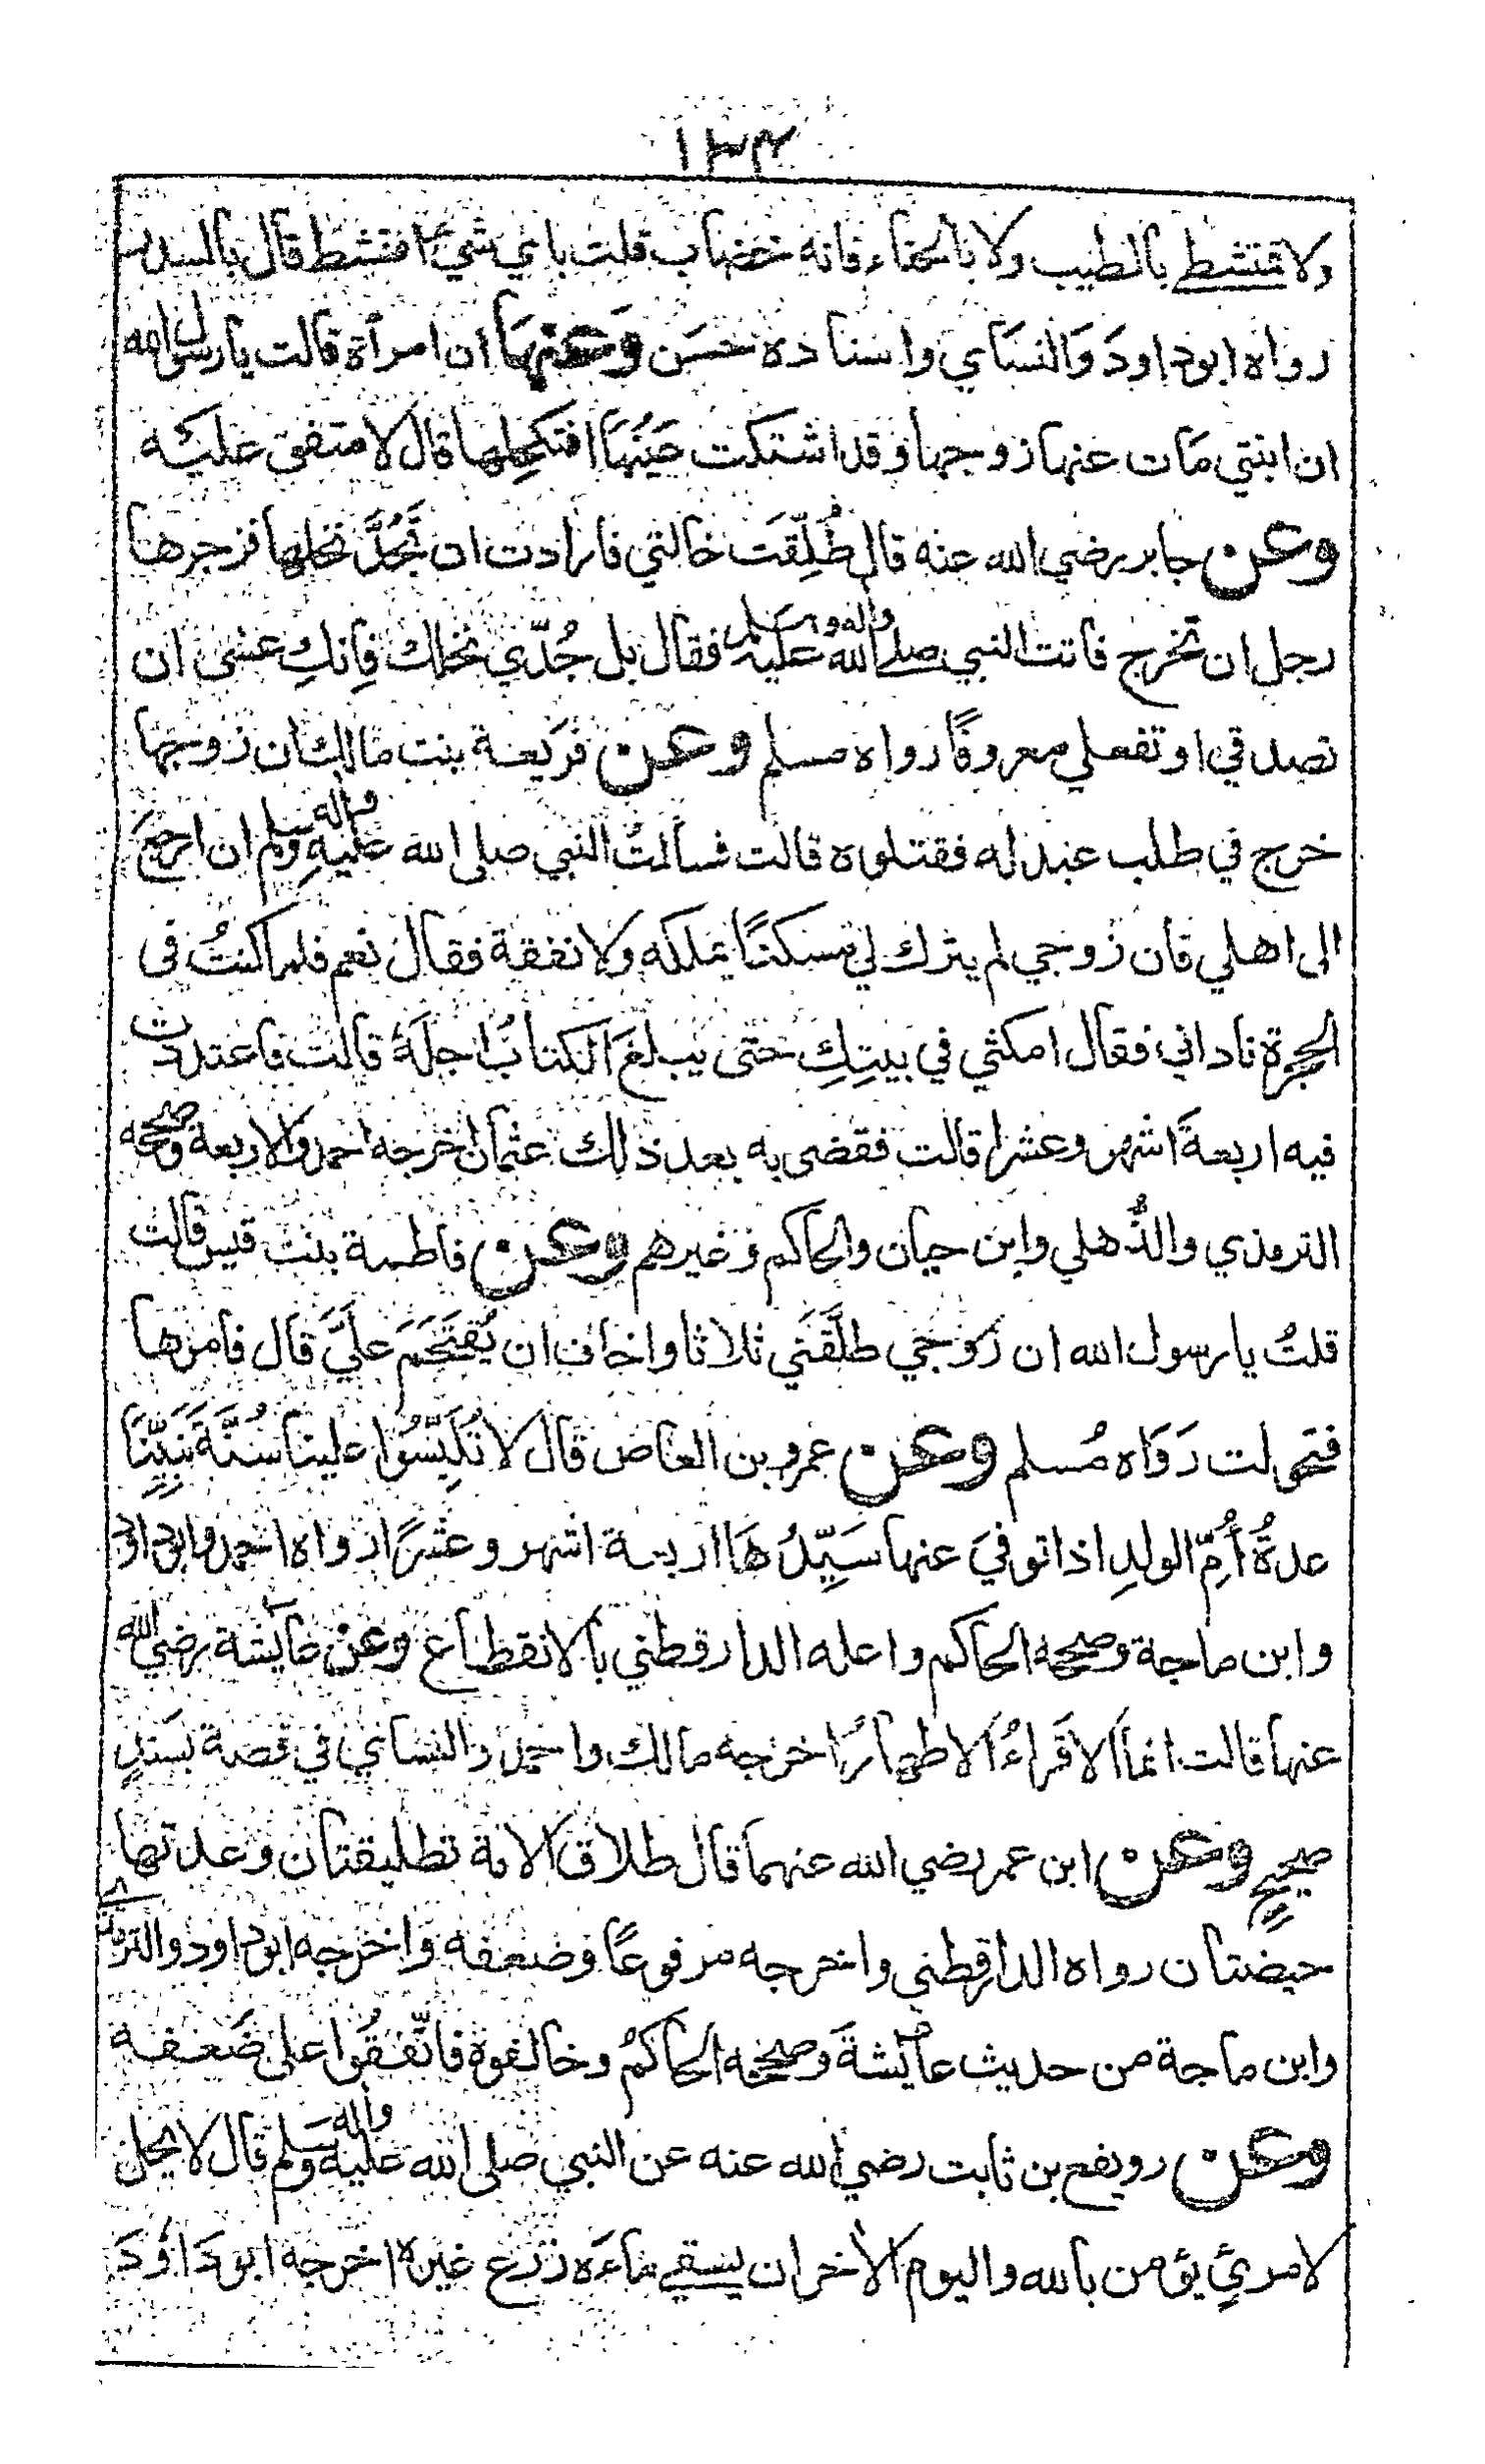 ١٣٤
ولا تمتشطي بالطيب ولا بالحناء فانه خضاب قلت باي شيء امتشط قال بالسدر
رواه ابو داود والنساي واسناده حسن وعنها ان امرأة قالت يا رسول الله
ان ابنتي مات عنها زوجها وقد اشتكت عينها افنكحلها قال لا متفق عليه
وعن جابر رضي الله عنه قال طُلِّقَت خالتي فارادت ان تَجُدَّ نخلها فزجرها
رجل ان تخرج فاتت النبي صلى الله عليه واله وسلم فقال بل جُدّي نخلك فانكِ عسى ان
تصدقي او تفعلي معروفًا رواه مسلم وعن فريعة بنت مالك ان زوجها
خرج في طلب عبد له فقتلوه قالت فسألتُ النبي صلى الله عليه واله وسلم ان ارجع
الى اهلي فان زوجي لم يترك لي مسكنًا يملكه ولا نفقة فقال نعم فلما كنتُ في
الحجرة ناداني فقال امكثي في بيتِكِ حتى يبلغَ الكتابُ اجلَهُ قالت فاعتددت
فيه اربعةَ اشهر وعشرا قالت فقضى به بعد ذلك عثمان اخرجه احمد والاربعة وصححه
الترمذي والذُّهلي وابن حبان والحاكم وغيرهم وعن فاطمة بنت قيس قالت
قلتُ يا رسول الله ان زَوجي طلَّقَني ثلاثا واخاف ان يُقتَحَمَ علَيَّ قال فامرها
فتحولت رَوَاه مُسلم وعن عمرو بن العاص قال لا تُلَبِّسُوا علينا سُنَّةَ نَبِيِّنَا
عدةُ أُمِّ الولدِ اذا توفيَ عنها سَيِّدُهَا اربعة اشهر وعشرًا رواه احمد وابو داود
وابن ماجة وصححه الحاكم واعله الدارقطني بالانقطاع وعن عايشة رضي الله
عنها قالت انما الاقَراءُ الاطهارُ اخرجه مالك واحمد والنساي في قصة بسندٍ
صحيحٍ وعن ابن عمر رضي الله عنهما قال طلاق الامة تطليقتان وعدتها
حيضتان رواه الدارقطني واخرجه مرفوعًا وضعفه واخرجه ابو داود والترمذي
وابن ماجة من حديث عايشةَ وصححه الحاكمُ وخالفوه فاتَّفقُوا على ضَعفه
وعن رويفع بن ثابت رضي الله عنه عن النبي صلى الله عليه واله وسلم قال لا يحل
لامرئٍ يؤمن بالله واليوم الاخر ان يسقي ماءَه زرع غيره اخرجه ابو داؤد